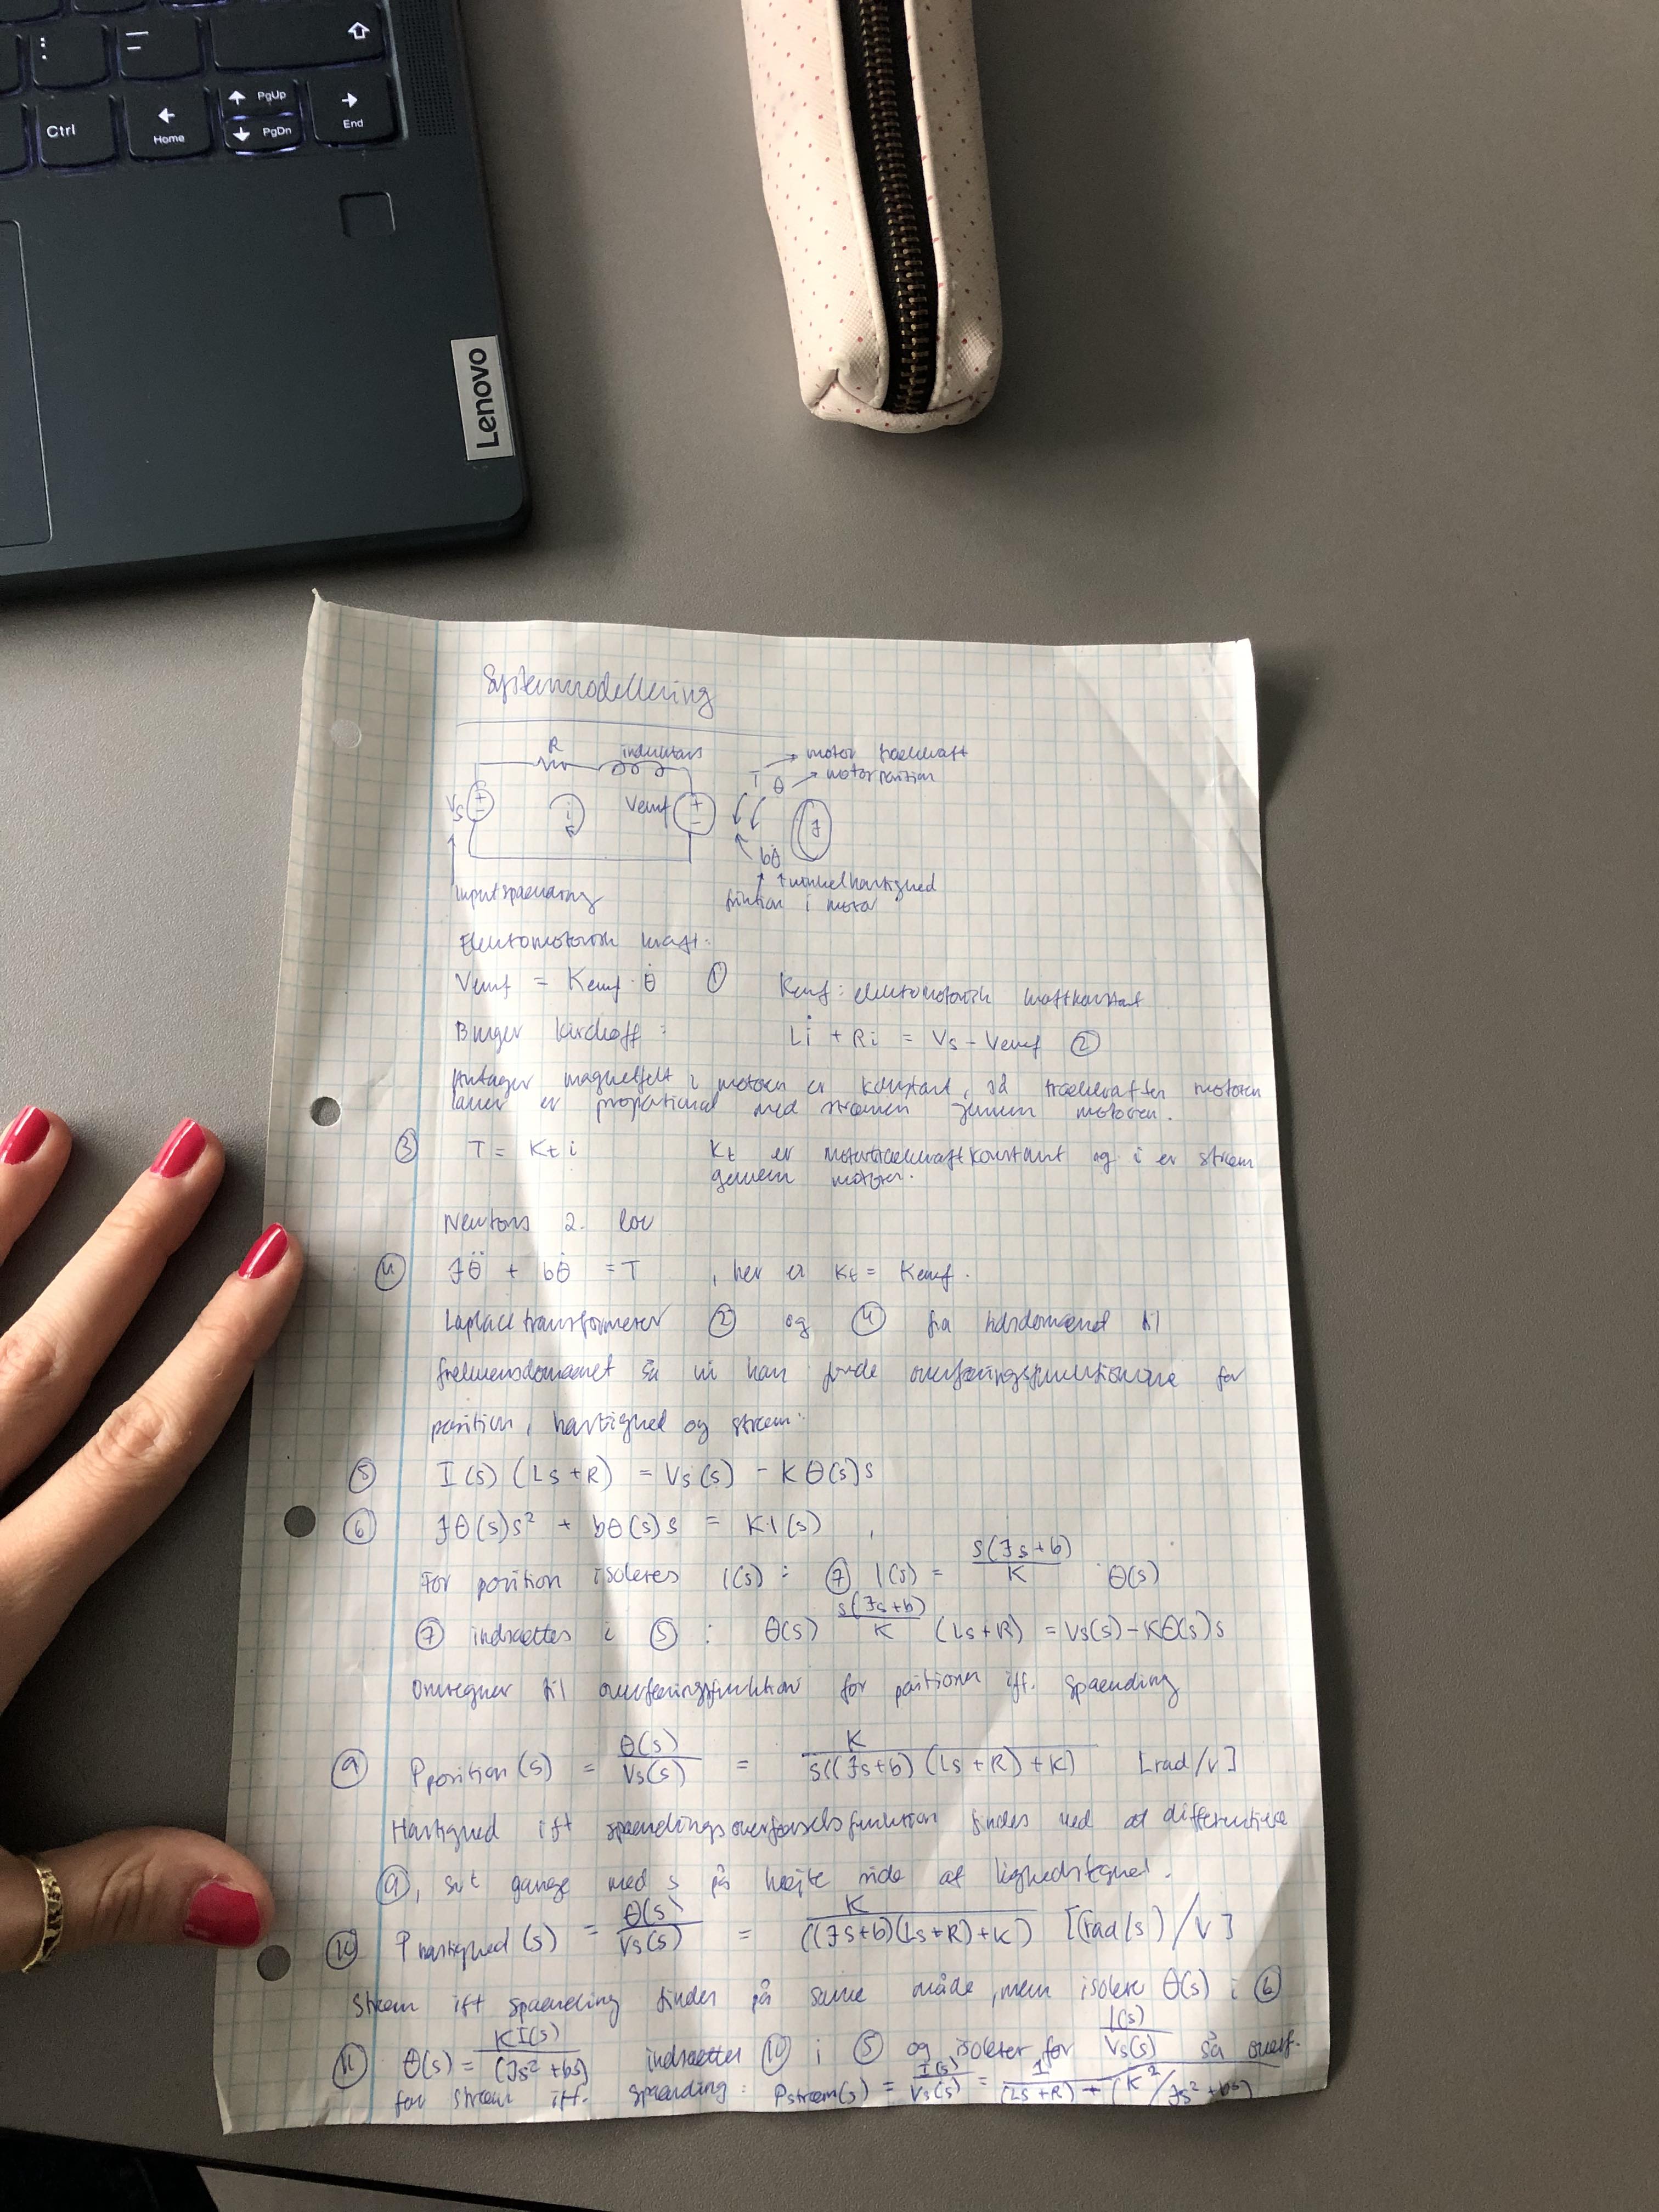 Ctrl
Home
PgUp
PgDn
End
Lenovo
Systemmodellering
R induktans
→ motor trækkraft
T θ → motorposition
Vs + − i Vemf + − J
bθ̇
Inputspænding ↑ vinkelhastighed
friktion i motor
Elektromotorisk kraft:
Vemf = Kemf · θ̇ ① Kemf: elektromotorisk kraftkonstant
Bruger kirchoff: Li̇ + Ri = Vs − Vemf ②
Antager magnetfelt i motoren er konstant, så trækkraften motoren
laver er proportional med strømmen gennem motoren.
③ T = Kt i Kt er motortrækkraftkonstant og i er strøm
gennem motoren.
Newtons 2. lov
④ Jθ̈ + bθ̇ = T , her er Kt = Kemf.
Laplacetransformerer ② og ④ fra tidsdomænet til
frekvensdomænet så vi kan finde overføringsfunktionerne for
position, hastighed og strøm:
⑤ I(s) (Ls+R) = Vs(s) − Kθ(s)s
⑥ Jθ(s)s² + bθ(s)s = K·I(s) ,
For position isoleres I(s) : ⑦ I(s) = s(Js+b)/K θ(s)
⑦ indsættes i ⑤ : θ(s) s(Js+b)/K (Ls+R) = Vs(s) − Kθ(s)s
Omregner til overføringsfunktion for position ift. spænding
⑨ Pposition(s) = θ(s)/Vs(s) = K/s((Js+b)(Ls+R)+K) [rad/V]
Hastighed ift spændingsoverførselsfunktion findes ved at differentiere
⑨, svt gange med s på højre side af lighedstegnet.
⑩ Phastighed(s) = θ̇(s)/Vs(s) = K/((Js+b)(Ls+R)+K) [(rad/s)/V]
Strøm ift spænding findes på samme måde, men isolere θ(s) i ⑥
⑪ θ(s) = KI(s)/(Js²+bs) indsætter ⑩ i ⑤ og isolerer for I(s)/Vs(s) så overf.
for strøm ift. spænding: Pstrøm(s) = I(s)/Vs(s) = 1/(Ls+R) + (K²/Js²+bs)